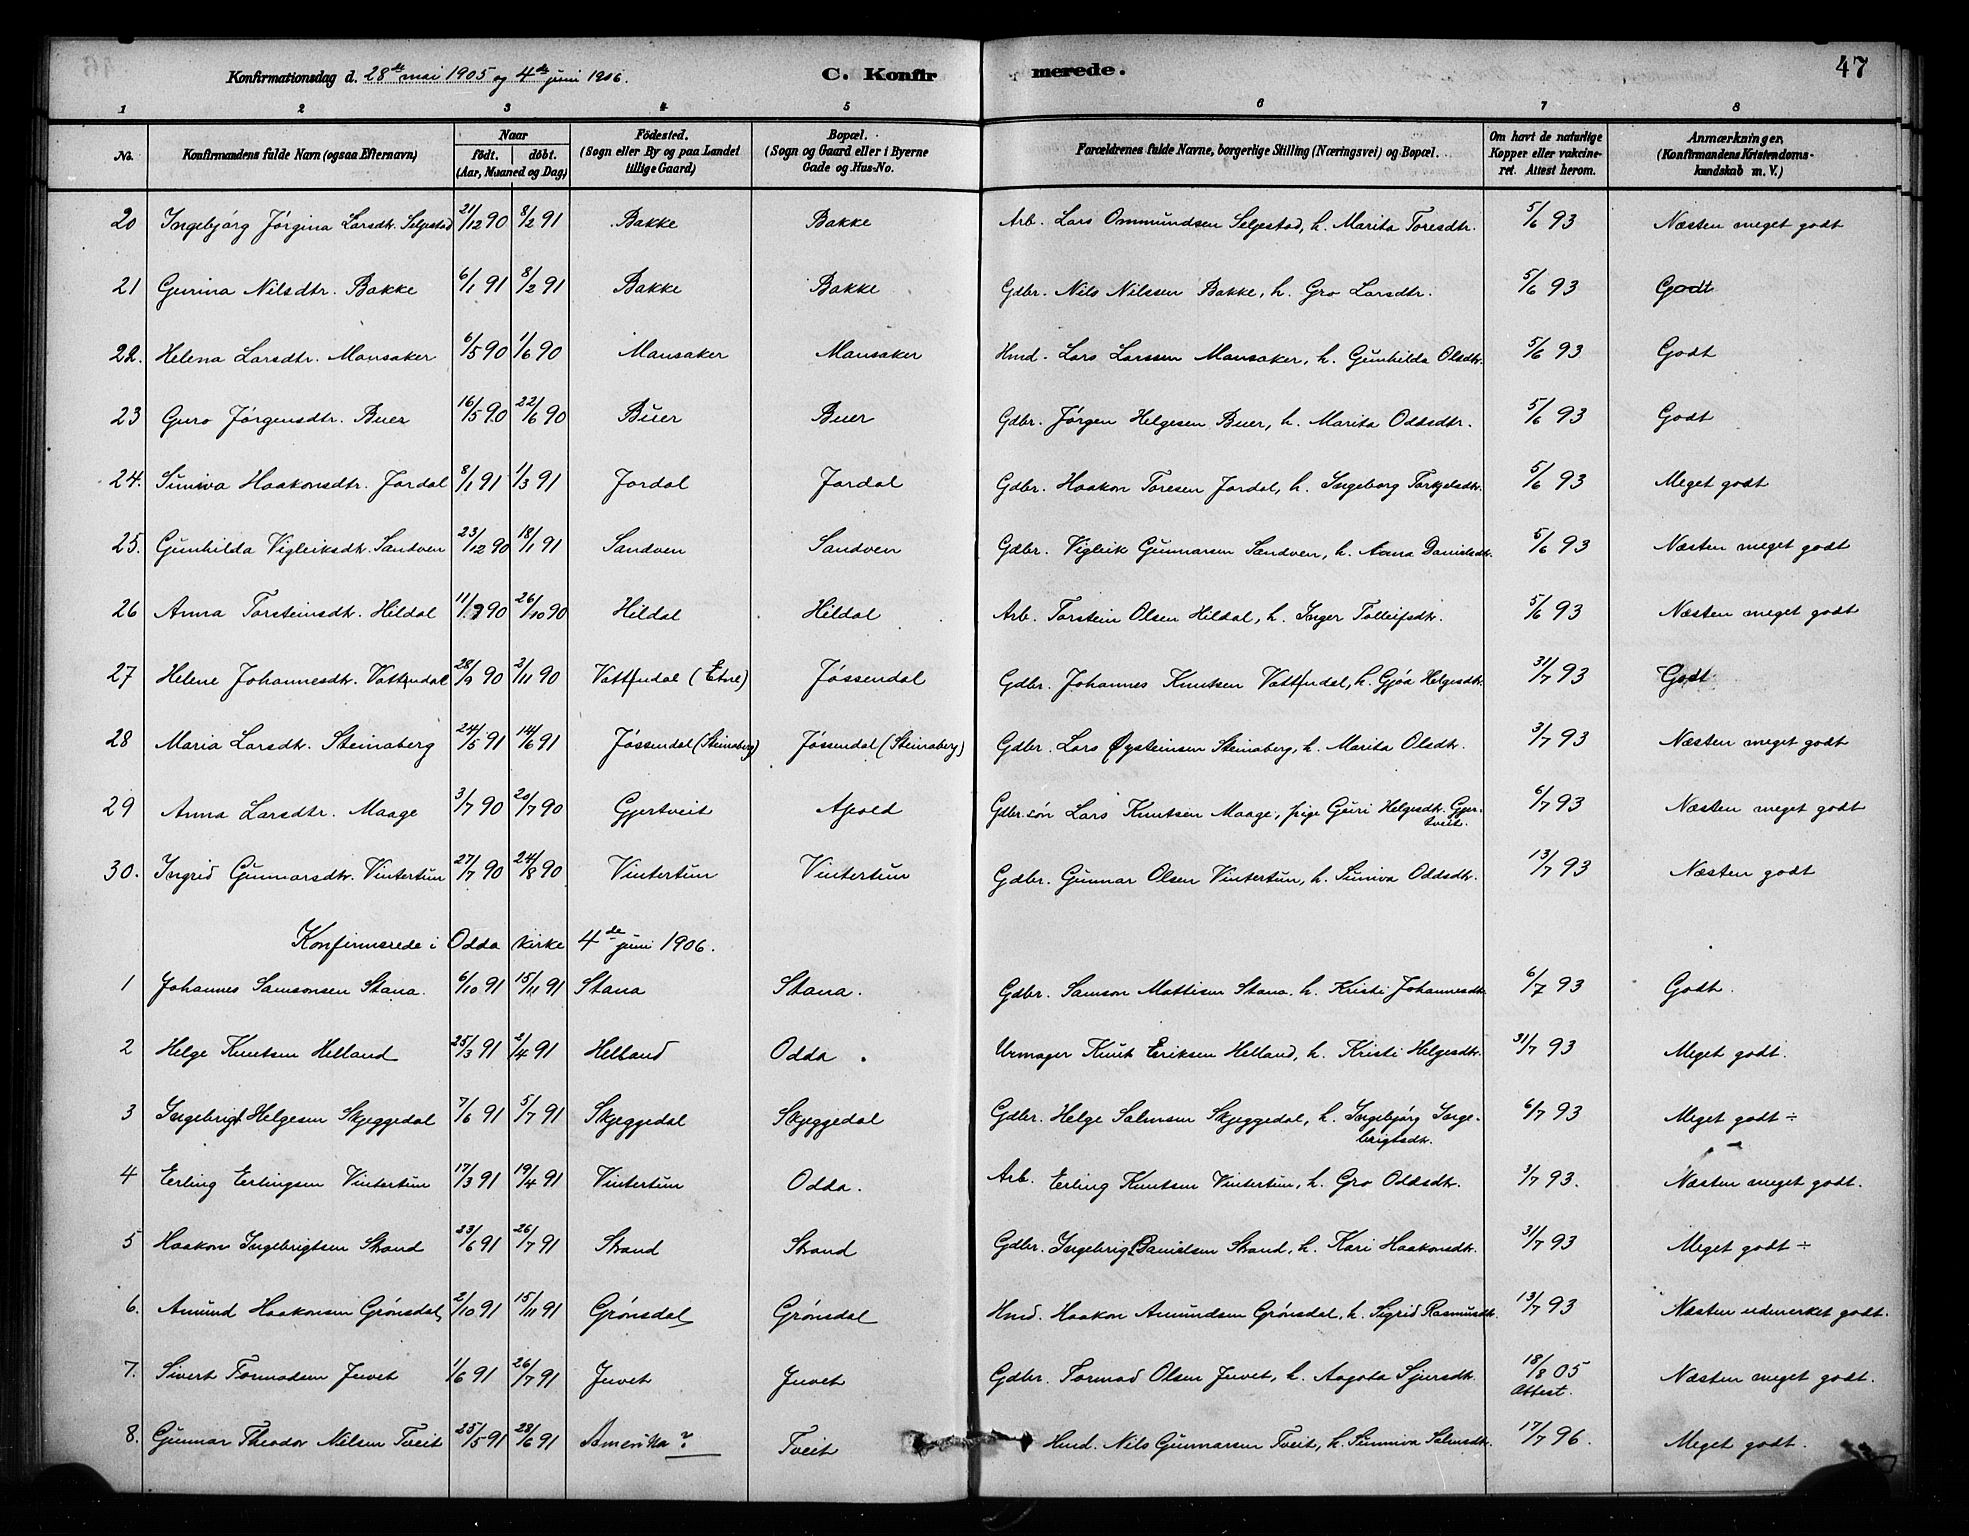 Konfirmationsdag d. 28de mai 1905 og 4de juni 1906. C. Konfirmerede. 47
1 2 3 4 5 6 7 8
No. Konfirmandens fulde Navn (ogsaa Efternavn) Naar födt. döbt. (Aar, Maaned og Dag) Födested. (Sogn eller By og paa Landet tillige Gaard) Bopæl. (Sogn og Gaard eller i Byerne Gade og Hus-No. Forældrenes fulde Navne, borgerlige Stilling (Næringsvei) og Bopæl. Om havt de naturlige Kopper eller vakcineret. Attest herom. Anmærkninger, (Konfirmandens Kristendomskundskab m. V.)
20 Ingebjørg Jørgina Larsdtr. Seljestad 21/12 90 8/2 91 Bakke Bakke Arb. Lars Ommundsen Seljestad, h. Marita Toresdtr. 5/6 93 Næsten meget godt
21 Gurina Nilsdtr. Bakke 6/1 91 8/2 91 Bakke Bakke Gdbr. Nils Nilssen Bakke, h. Gro Larsdtr. 5/6 93 Godt
22. Helena Larsdtr. Mansaker 6/5 90 1/6 90 Mansaker Mansaker Hmd. Lars Larssen Mansaker, h. Gunhilda Olsdtr. 5/6 93 Godt
23 Guro Jørgensdtr. Buer 16/5 90 22/6 90 Buer Buer Gdbr. Jørgen Helgesen Buer, h. Marita Oddsdtr. 5/6 93 Godt
24. Suniva Haakonsdtr. Jordal 8/1 91 1/3 91 Jordal Jordal Gdbr. Haakon Toresen Jordal, h. Ingeborg Torkjelsdtr. 5/6 93 Meget godt
25. Gunhilda Vigleiksdtr. Sandven 23/12 90 18/1 91 Sandven Sandven Gdbr. Vigleik Gunnarsen Sandven, h. Anna Danielsdtr. 5/6 93 Næsten meget godt
26 Anna Torsteinsdtr. Hildal 11/9 90 26/10 90 Hildal Hildal Arb. Torstein Olsen Hildal, h. Inger Tolleifsdtr. 5/6 93 Næsten meget godt
27 Helene Johannesdtr. Vattndal 28/9 90 2/11 90 Vattndal (Etne) Jøssendal Gdbr. Johannes Knutsen Vattndal, h. Gjøa Helgesdtr. 31/7 93 Godt
28 Maria Larsdtr. Steinaberg 24/5 91 14/6 91 Jøssendal (Steinaberg) Jøssendal (Steinaberg) Gdbr. Lars Øysteinsen Steinaberg, h. Marita Olsdtr. 3/7 93 Næsten meget godt
29 Anna Larsdtr. Maage 3/7 90 20/7 90 Gjertveit Apold Gdbr. søn Lars Knutsen Maage, pige Guri Helgesdtr. Gjer-
tveit.
6/7 93 Næsten meget godt
30. Ingrid Gunnarsdtr. Vintertun 27/7 90 24/8 90 Vintertun Vintertun Gdbr. Gunnar Olsen Vintertun, h. Suniva Oddsdtr. 13/7 93 Næsten godt
Konfirmerede i Odda kirke 4de juni 1906.
1 Johannes Samsonsen Stana. 6/10 91 15/11 91 Stana Stana. Gdbr. Samson Mattisen Stana, h. Kristi Johannesdtr. 6/7 93 Godt.
2 Helge Knutsen Helland 25/3 91 2/4 91 Helland Odda. Urmager Knut Eriksen Helland, h. Kristi Helgesdtr. 31/7 93 Meget godt.
3 Ingebrigt Helgesen Skjeggedal 7/6 91 5/7 91 Skjeggedal Skjeggedal Gdbr. Helge Salmsen Skjeggedal, h. Ingebjørg Inge-
brigtsdtr.
6/7 93 Meget godt ÷
4 Erling Erlingsen Vintertun 17/3 91 19/4 91 Vintertun Odda. Arb. Erling Knutsen Vintertun, h. Gro Oddsdtr. 3/7 93. Næsten meget godt.
5 Haakon Ingebrigtsen Strand 23/6 91 26/7 91 Strand Strand Gdbr. Ingebrigt Danielsen Strand, h. Kari Haakonsdtr. 31/7 93 Meget godt ÷
6. Amund Haakonsen Grønsdal 2/10 91 15/11 91 Grønsdal Grønsdal Hmd. Haakon Amundsen Grønsdal, h. Sigrid Rasmusdtr. 13/7 93 Næsten udmerket godt.
7. Sivert Tormodsen Juvet 1/6 91 26/7 91 Juvet Juvet Gdbr. Tormod Olsen Juvet, h. Aagota Sjursdtr. 18/8 05 Attest. Næsten meget godt.
8. Gunnar Theodor Nilsen Tveit 25/5 91 28/6 91 Amerika? Tveit Hmd. Nils Gunnarsen Tveit, h. Sunniva Salmsdtr. 17/7 96. Meget godt.